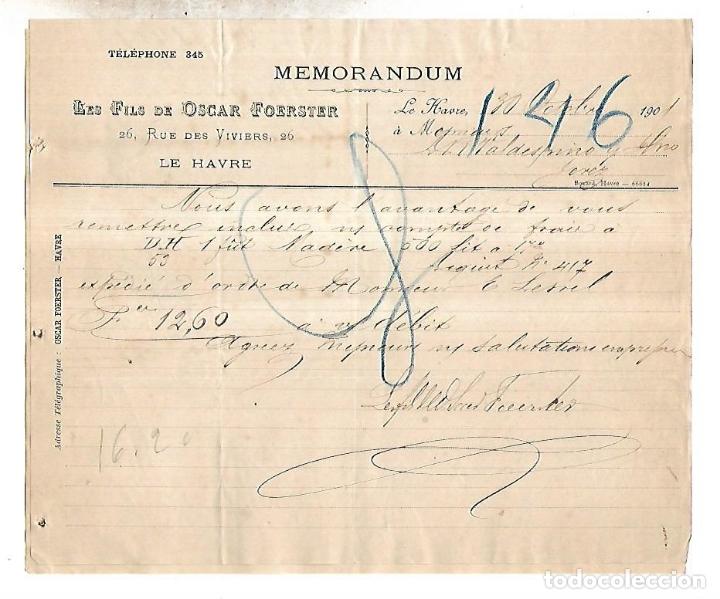 TÉLÉPHONE 345
MEMORANDUM
LES FILS DE OSCAR FOERSTER
26, RUE DES VIVIERS, 26
LE HAVRE
Le Havre, 30 1901
à Messieurs
A. R. Valdespino y Hno
Jerez
146
Nous avons l'avantage de vous
remettre inclus, n/ compte de frais à
DH 1 fût Madère 500 lit
53 N° 417
expédié d'ordre de Monsieur E
Fcs 12,60 à v/ débit
Agréez Messieurs n/ salutations empressées
Les fils de Oscar Foerster
16.20
Adresse Télégraphique : OSCAR FOERSTER — HAVRE
todocoleccion
todocoleccion.net